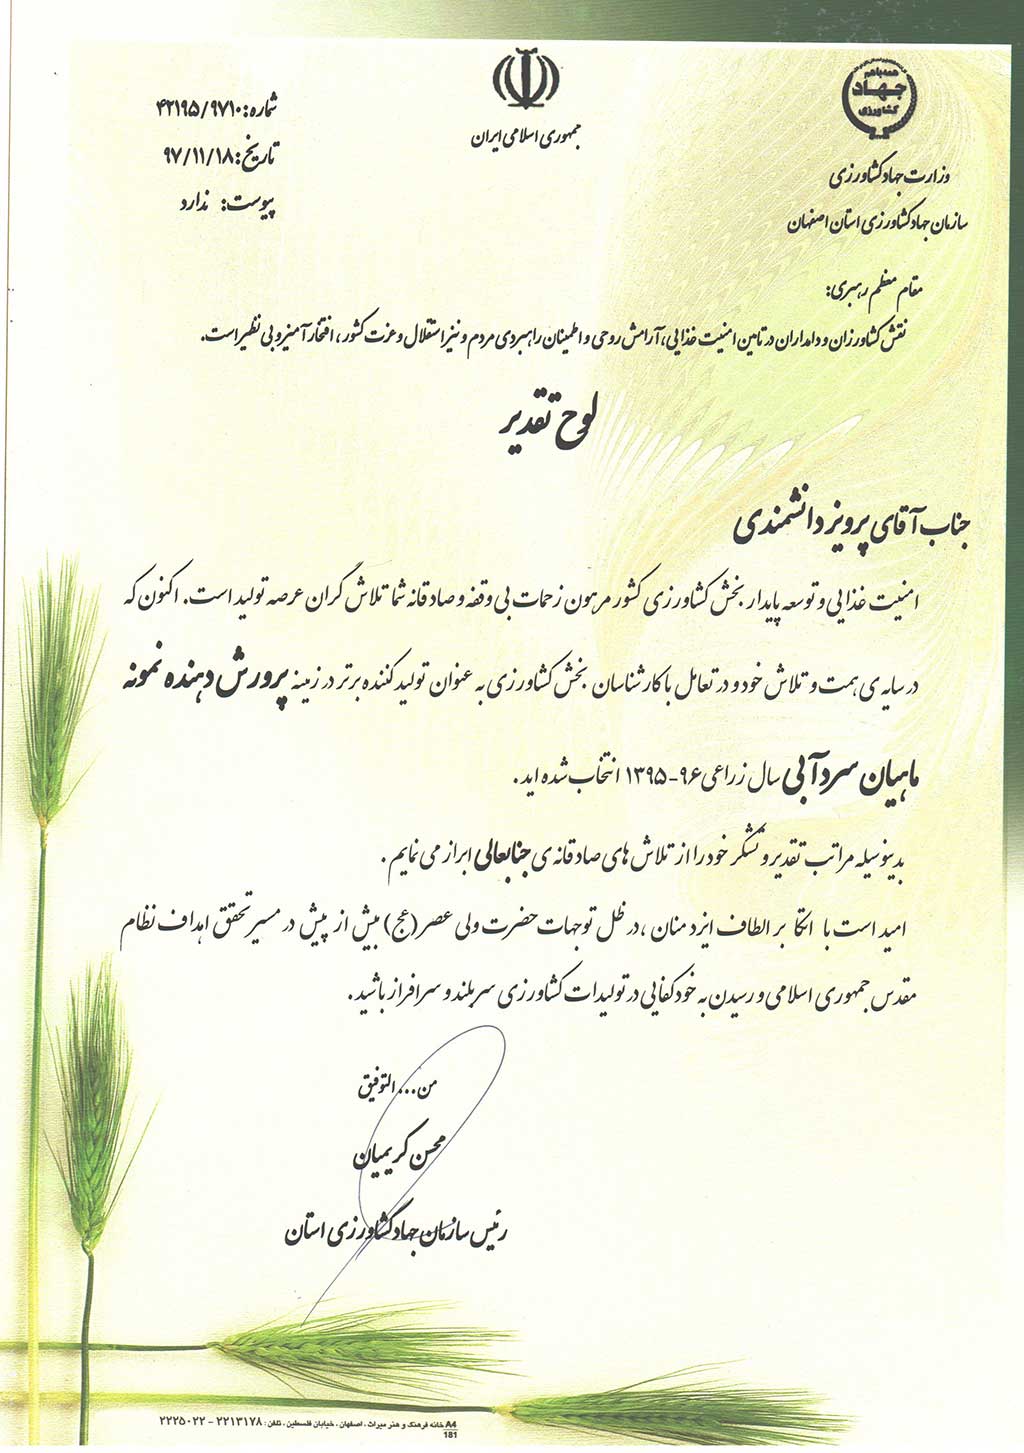 همه با هم
جهاد
کشاورزی
جمهوری اسلامی ایران
وزارت جهاد کشاورزی
سازمان جهاد کشاورزی استان اصفهان
شماره: ۴۲۱۹۵/۹۷۱۰
تاریخ: ۹۷/۱۱/۱۸
پیوست: ندارد
مقام معظم رهبری:
نقش کشاورزان و دامداران در تامین امنیت غذایی، آرامش روحی و اطمینان راهبردی مردم و نیز استقلال و عزت کشور، افتخار آمیز و بی نظیر است.
لوح تقدیر
جناب آقای پرویز دانشمندی
امنیت غذایی و توسعه پایدار بخش کشاورزی کشور مرهون زحمات بی وقفه و صادقانه شما تلاش گران عرصه تولید است. اکنون که
در سایه ی همت و تلاش خود و در تعامل با کارشناسان بخش کشاورزی به عنوان تولید کننده برتر در زمینه پرورش دهنده نمونه
ماهیان سردآبی سال زراعی ۹۶-۱۳۹۵ انتخاب شده اید.
بدینوسیله مراتب تقدیر و تشکر خود را از تلاش های صادقانه ی جنابعالی ابراز می نمایم.
امید است با اتکا بر الطاف ایزد منان، در ظل توجهات حضرت ولی عصر(عج) بیش از پیش در مسیر تحقق اهداف نظام
مقدس جمهوری اسلامی و رسیدن به خودکفایی در تولیدات کشاورزی سربلند و سرافراز باشید.
من ... التوفیق
محسن کریمیان
رئیس سازمان جهاد کشاورزی استان
A4 خانه فرهنگ و هنر میراث، اصفهان، خیابان فلسطین، تلفن: ۲۲۱۳۱۷۸ - ۲۲۲۵۰۲۲
181